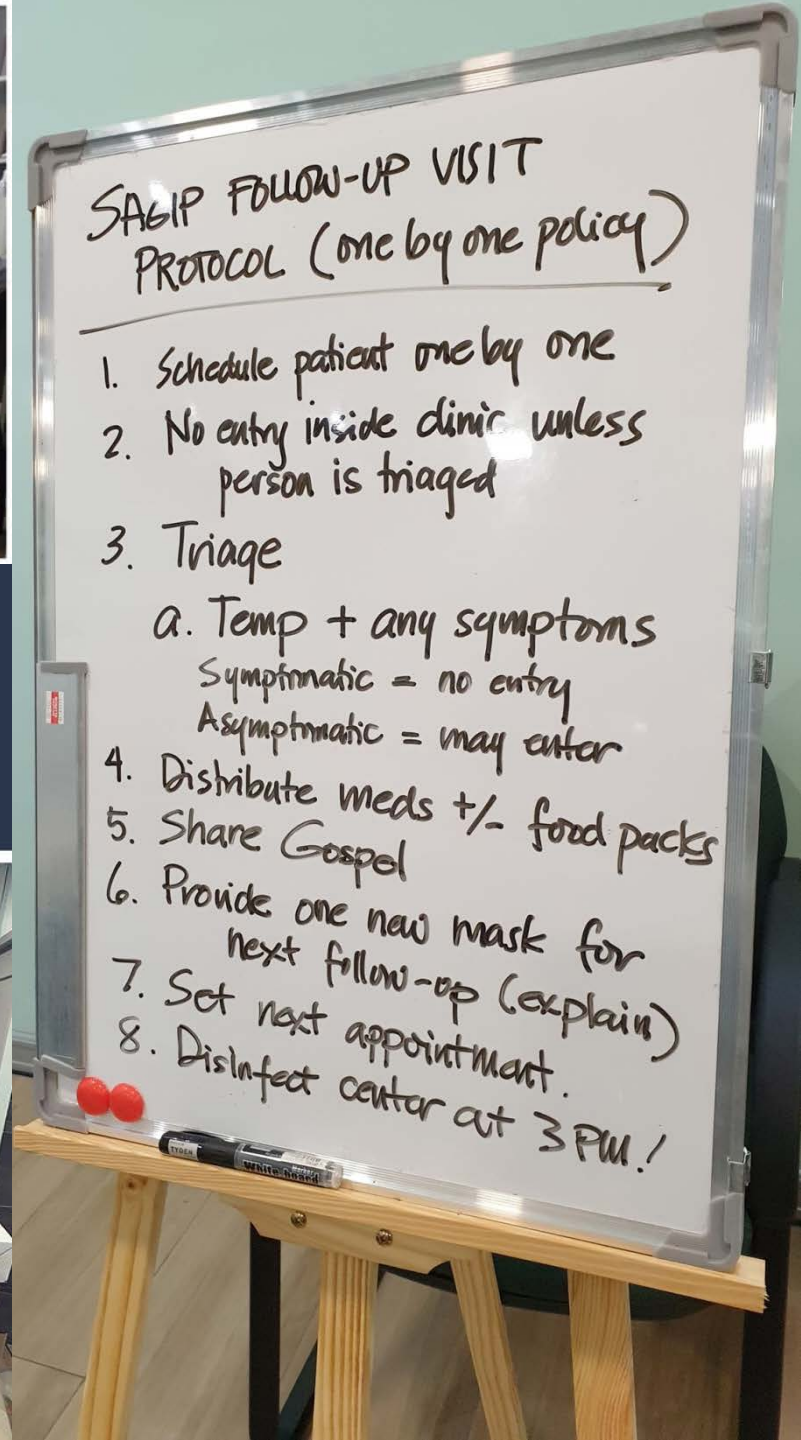 SAGIP FOLLOW-UP VISIT
PROTOCOL (one by one policy)
1. Schedule patient one by one
2. No entry inside clinic unless
person is triaged
3. Triage
a. Temp + any symptoms
Symptomatic = no entry
Asymptomatic = may enter
4. Distribute meds +/- food packs
5. Share Gospel
6. Provide one new mask for
next follow-up (explain)
7. Set next appointment.
8. Disinfect center at 3 PM!
TYDEN
White board